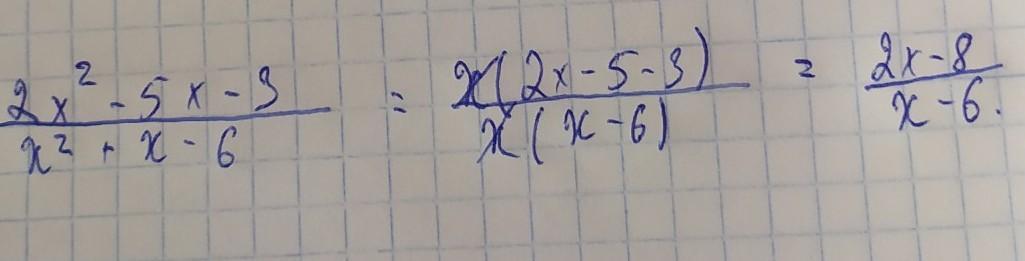 (2x² - 5x - 3)/(x² + x - 6) = x(2x - 5 - 3)/x(x - 6) = (2x - 8)/(x - 6).